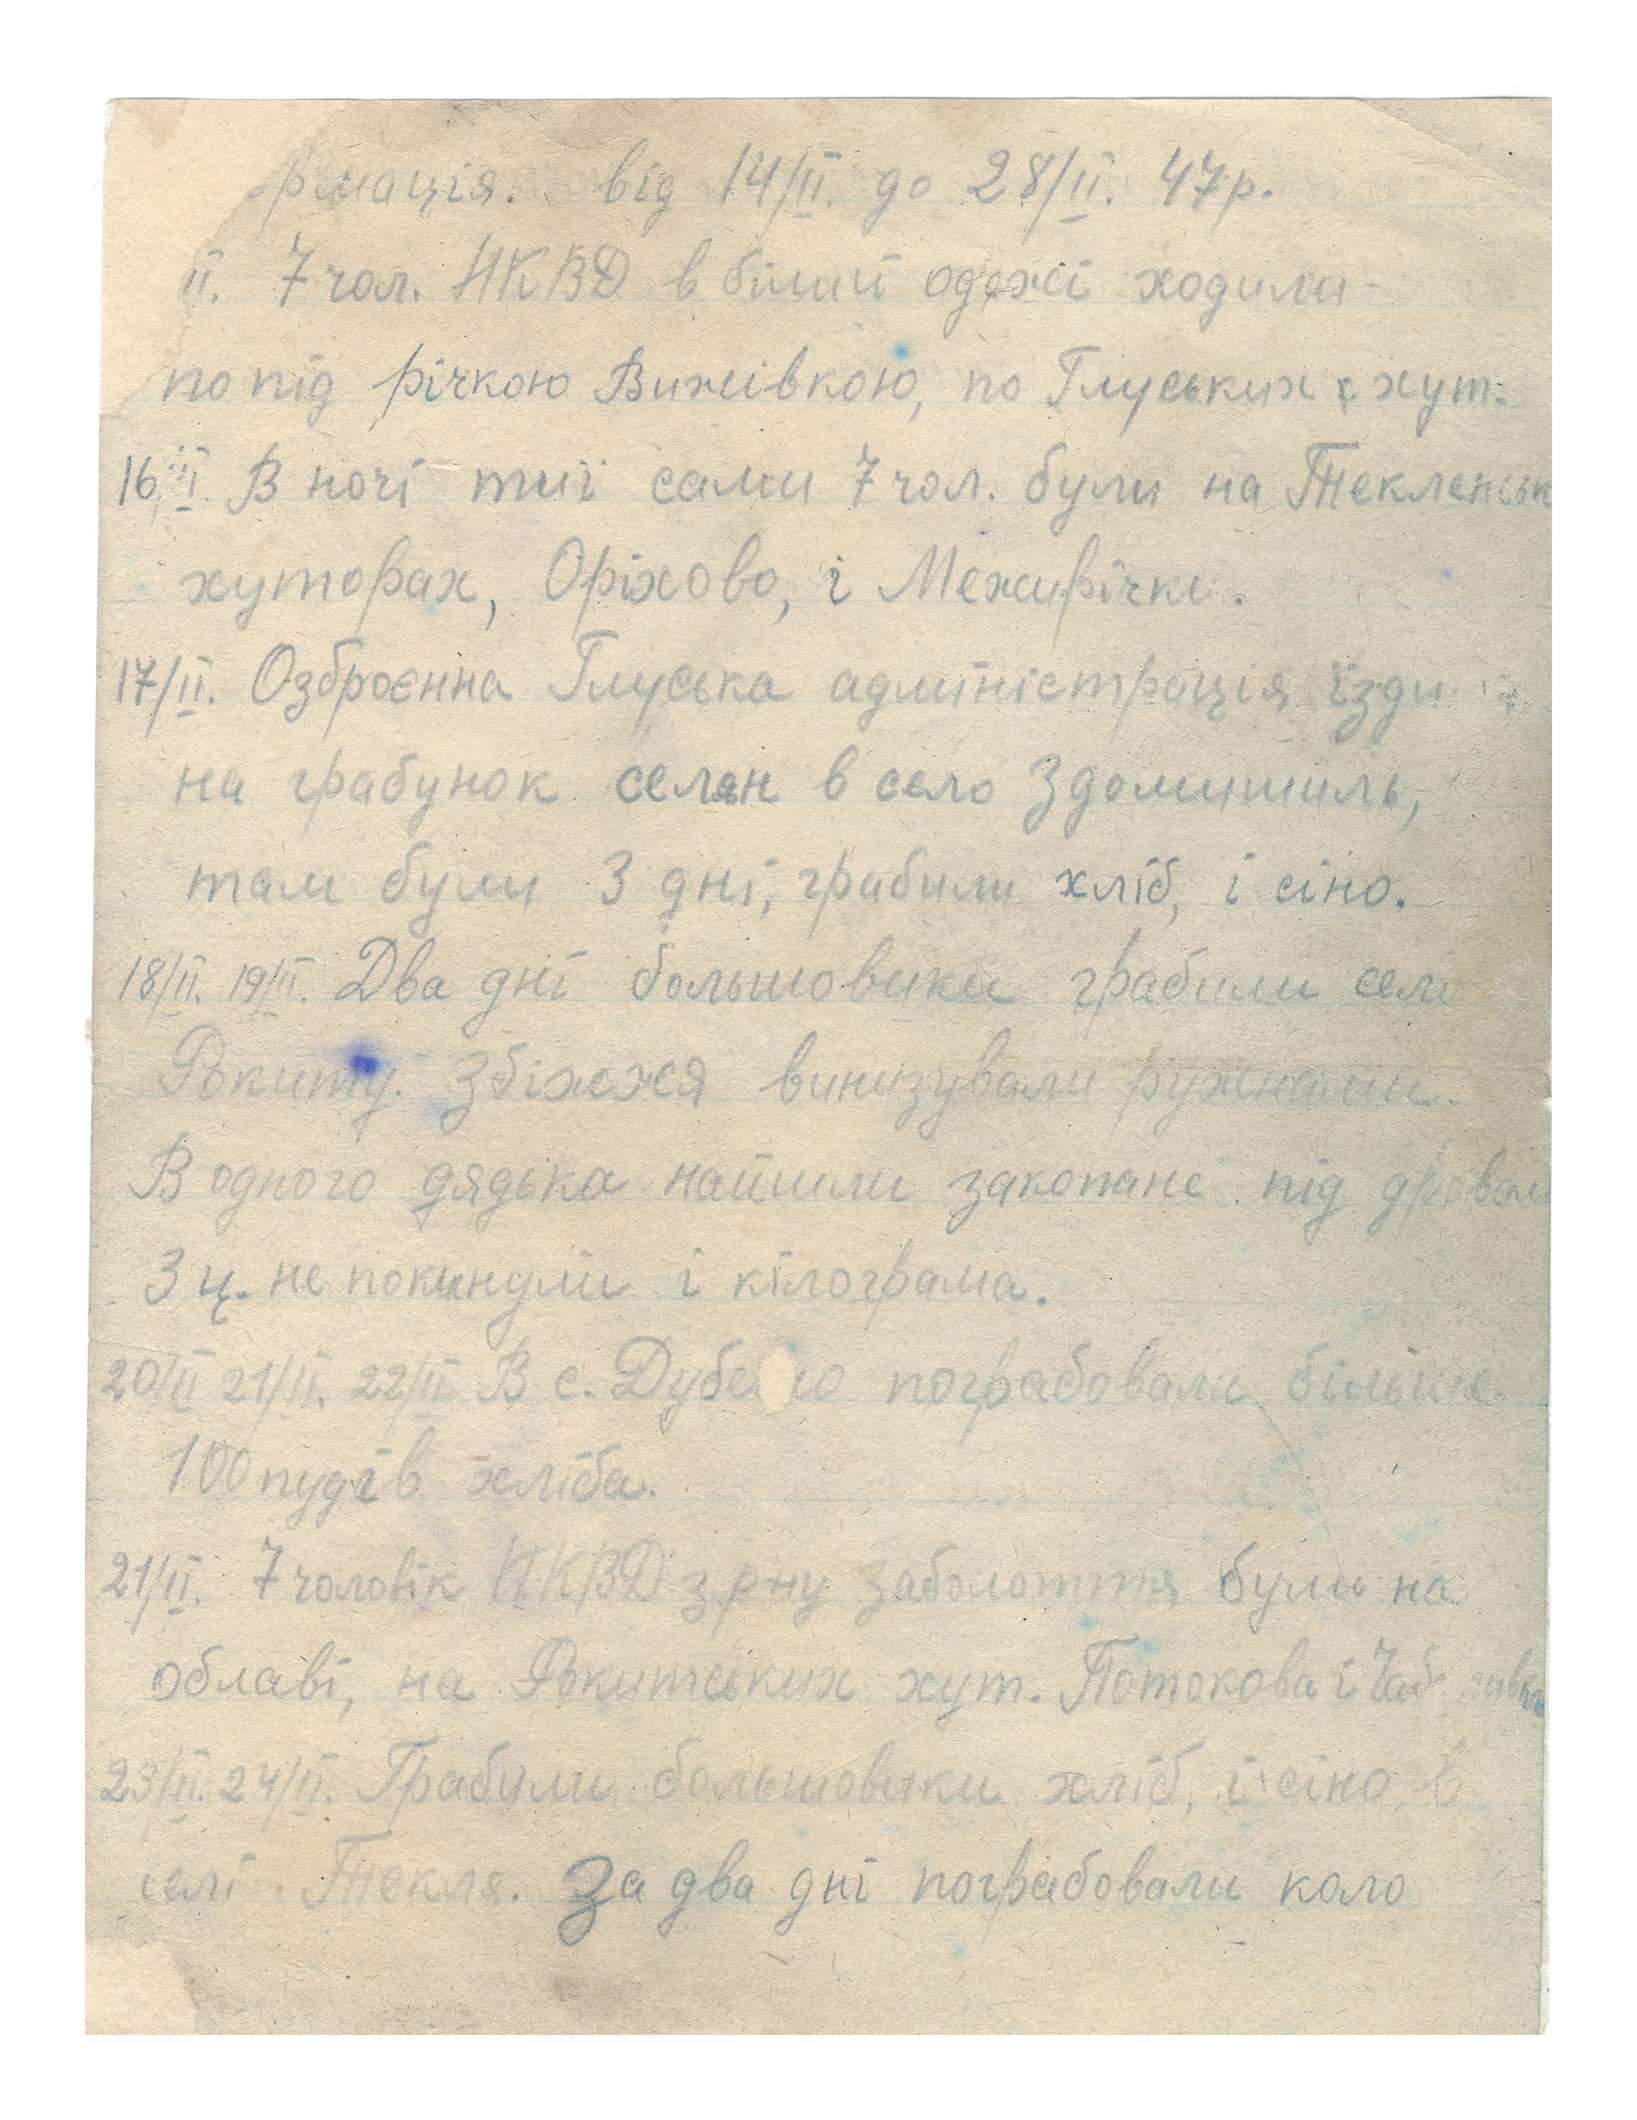 рмація. від 14/II. до 28/II. 47р.
II. 7 чол. НКВД в білий одежі ходили
попід річкою Вижівкою, по Глуських хут.
16/II В ночі тиї сами 7 чол. були на Текленськ
хуторах, Оріхово, і Межирічки.
17/II. Озброєнна Глуська адміністрація їзди
на грабунок селян в село Здомишиль,
там були 3 дні, грабили хліб, і сіно.
18/II. 19/II. Два дні большовики грабили село
Рокиту. Збіжежя винизували ружнами.
В одного дядька найшли закопане під дровами
3 ц. не покинули і кілограма.
20/II 21/II. 22/II В с. пограбовали більше
100 пудів хліба.
21/II. 7 чоловік НКВД з рну Заболоття були на
облаві, на Рокитських хут. Потокова і
23/II. 24/II. Грабили большовики хліб, і сіно в
селі Текля. За два дні пограбовали коло